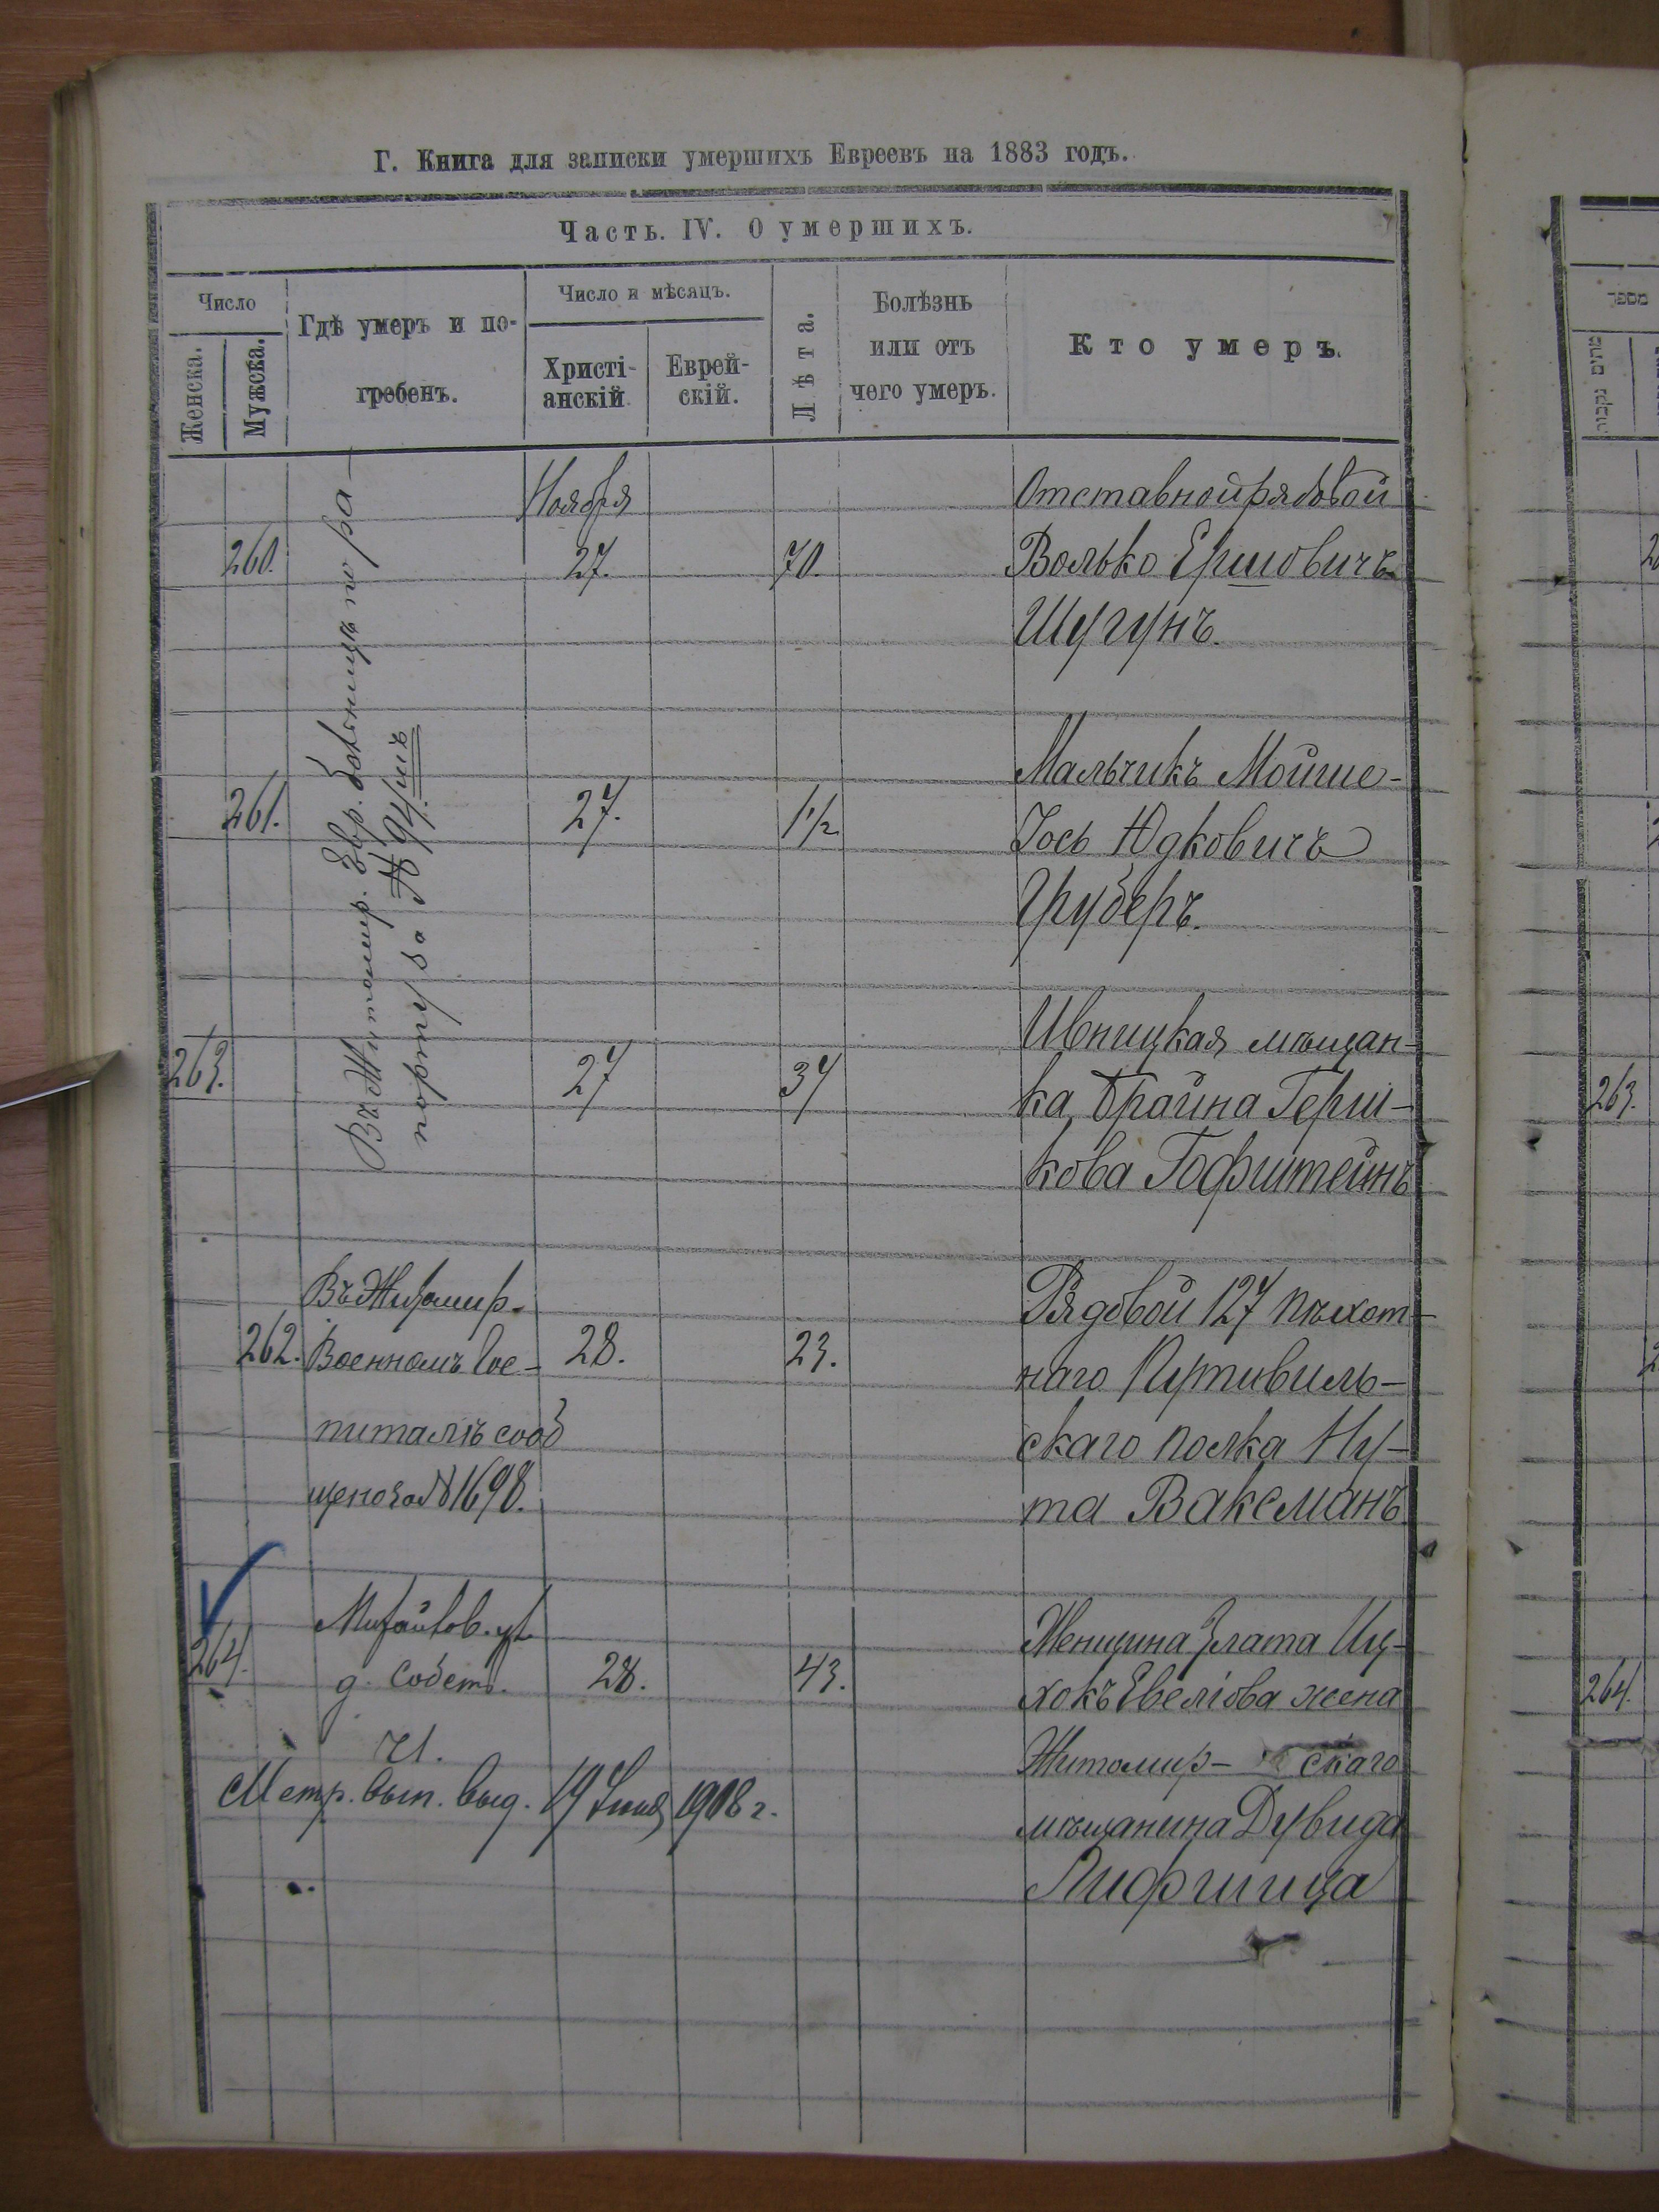 Г. Книга для записки умершихъ Евреевъ на 1883 годъ.
Часть. IV. О умершихъ.
Число
Женска.
Мужска.
Гдѣ умеръ и по-
гребенъ.
Число и мѣсяцъ.
Христі-
анскій
Еврей-
скій.
Лѣта.
Болѣзнь
или отъ
чего умеръ.
Кто умеръ.
Въ Житомир. Евр. больницѣ по ра-
порту за № 94.
Ноября
260.
27.
70.
Отставной рядовой
Волько Ершовичъ
Шугунъ.
261.
27.
1 1/2
Мальчикъ Мойше-
Іось Юдковичъ
Груберъ.
263.
27
34
Ивницкая мѣщан-
ка, Брайна Герш-
кова Гофштейнъ
Въ Житомир.
262.
Военномъ Гос-
питалѣ сооб
щено за № 1698.
28.
23.
Рядовой 127 пѣхот-
наго Путивиль-
скаго полка Ну-
та Ваксманъ
264.
д. Собств.
28.
43.
Женщина Злата Иц-
хокъ Евеліова жена
Житомир- скаго
мѣщанина Дувида
Лифшица
Метр. вып. выд. 19 Іюня 1908 г.
מספר
263.
264.